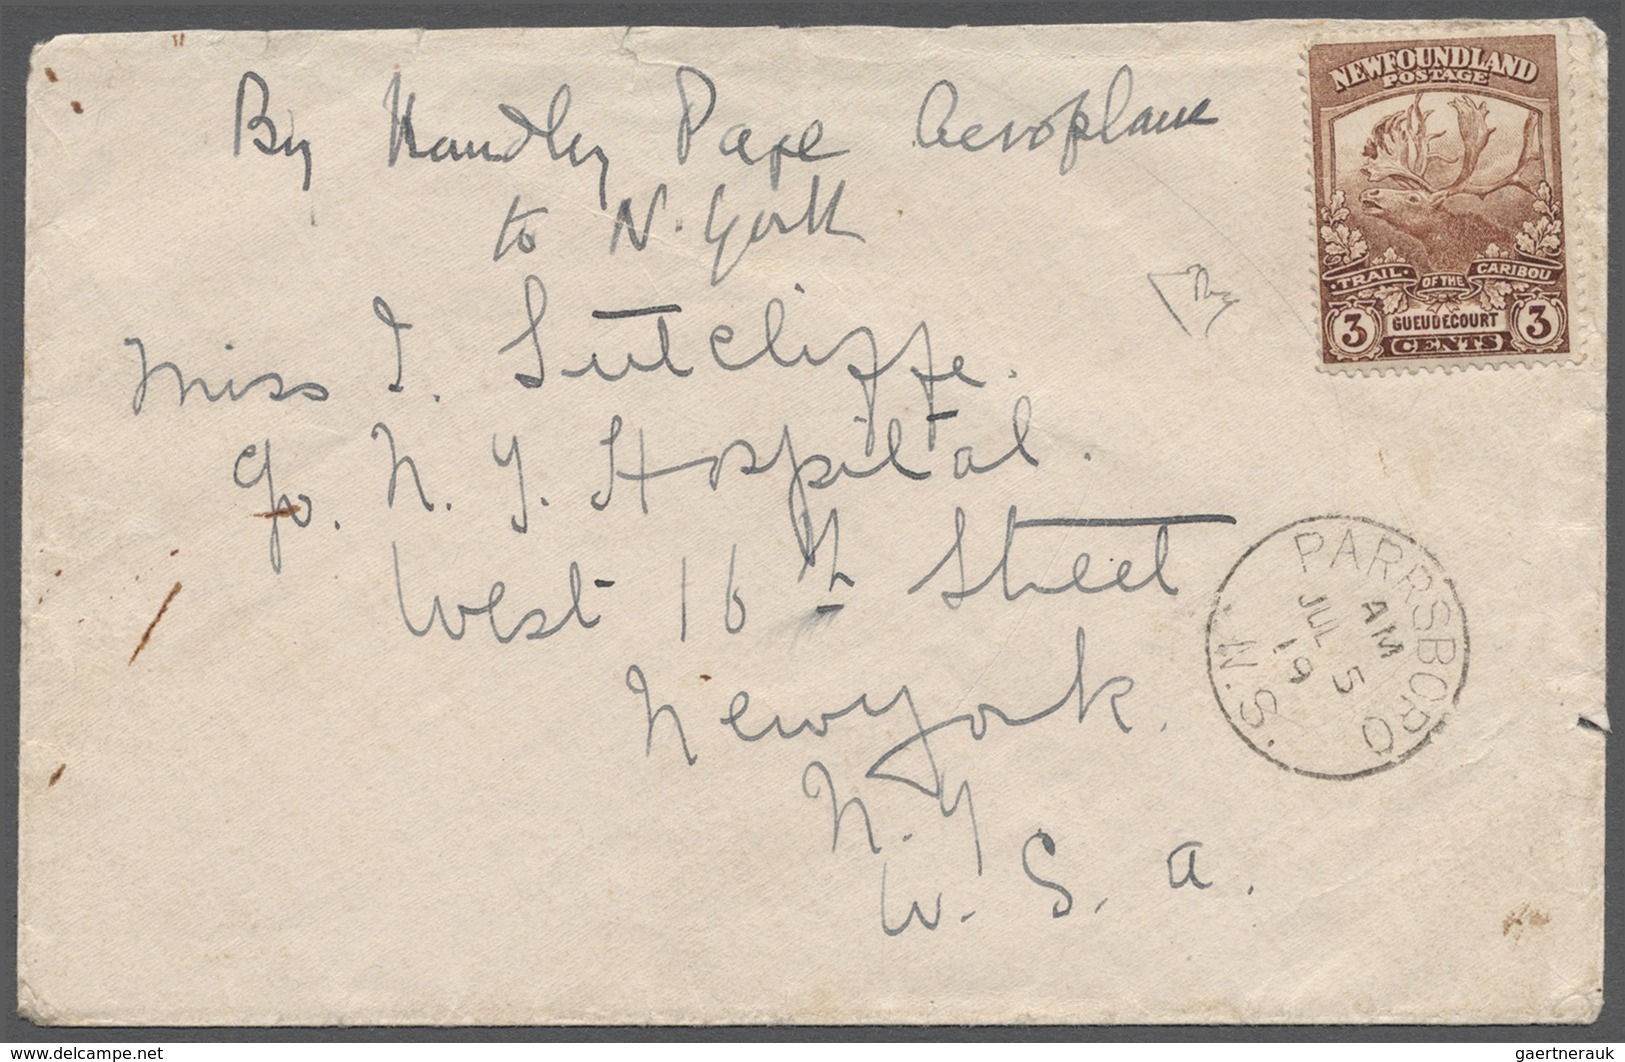 By Handley Page Aeroplane
to N. York
Miss I. Sutcliffe.
c/o. N. Y. Hospital.
West 16th Street
New York.
N.Y
U. S. a.
NEWFOUNDLAND
POSTAGE
TRAIL OF THE CARIBOU
3 GUEUDECOURT 3
CENTS
PARRSBORO
AM
JUL 5
19
N.S.
www.delcampe.net
gaertnerauk